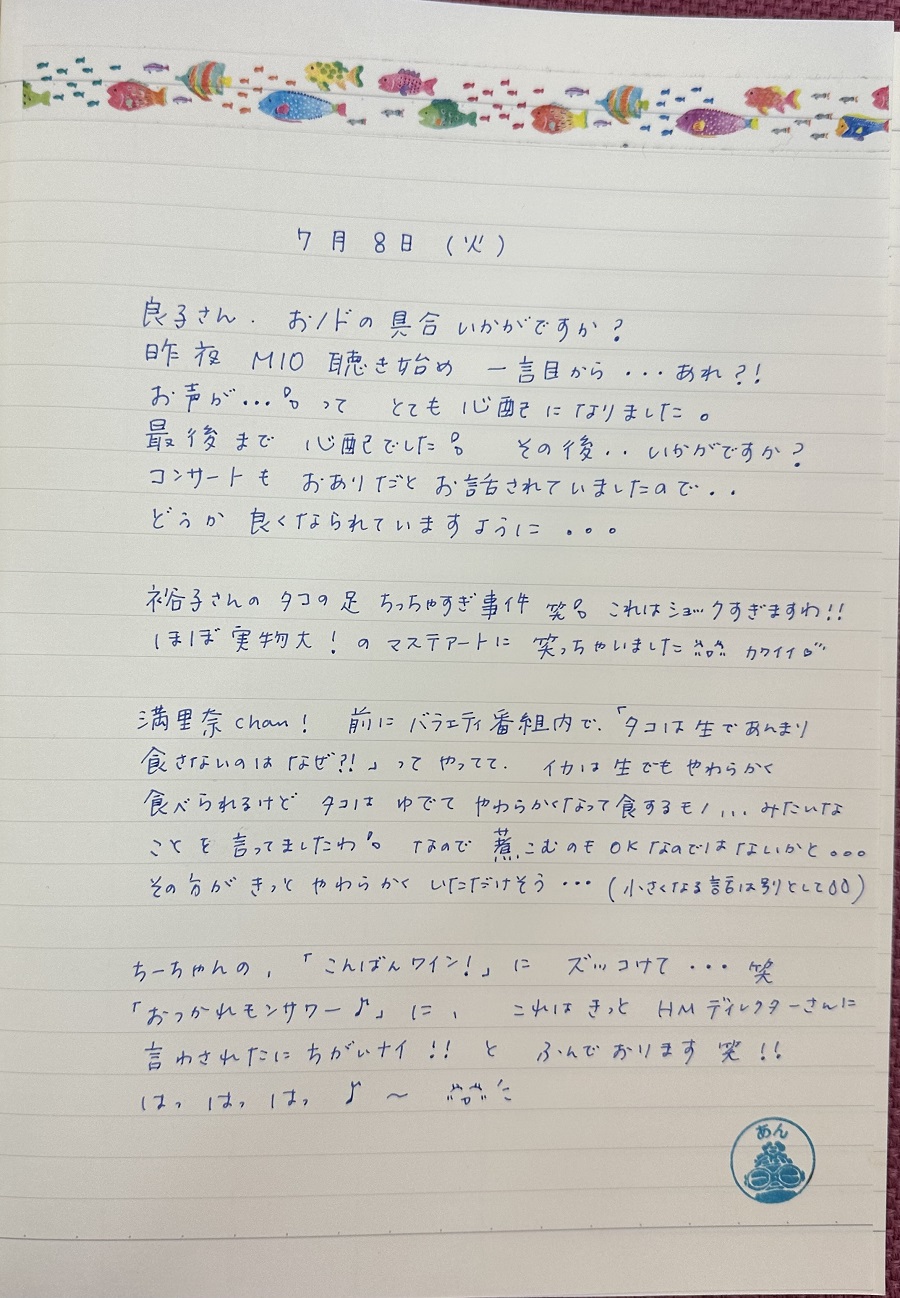 7月8日(火)
良子さん. おノドの具合いかがですか?
昨夜 MIO 聴き始め 一言目から・・・あれ?!
お声が...。って とても心配になりました。
最後まで 心配でした。 その後・・いかがですか?
コンサートも おありだと お話されていましたので・・
どうか 良くなられていますように 。。。
裕子さんの タコの足 ちっちゃすぎ事件 笑。これはショックすぎますわ!!
ほぼ実物大!のマステアートに 笑っちゃいました カワイイ
満里奈chan! 前にバラエティ番組内で.「タコは生であんまり
食さないのはなぜ?!」ってやってて. イカは生でもやわらかく
食べられるけど タコは ゆでて やわらかくなって食するモノ... みたいな
ことを言ってましたわ。 なので 煮こむのもOKなのではないかと。。。
その方がきっと やわらかく いただけそう・・・(小さくなる話は別として)
ちーちゃんの,「こんばんワイン!」に ズッコけて・・・ 笑
「おつかれモンサワー♪」に, これはきっと HMディレクターさんに
言わされたにちがいナイ!! と ふんでおります 笑!!
はっ はっ はっ ♪ ~
あん